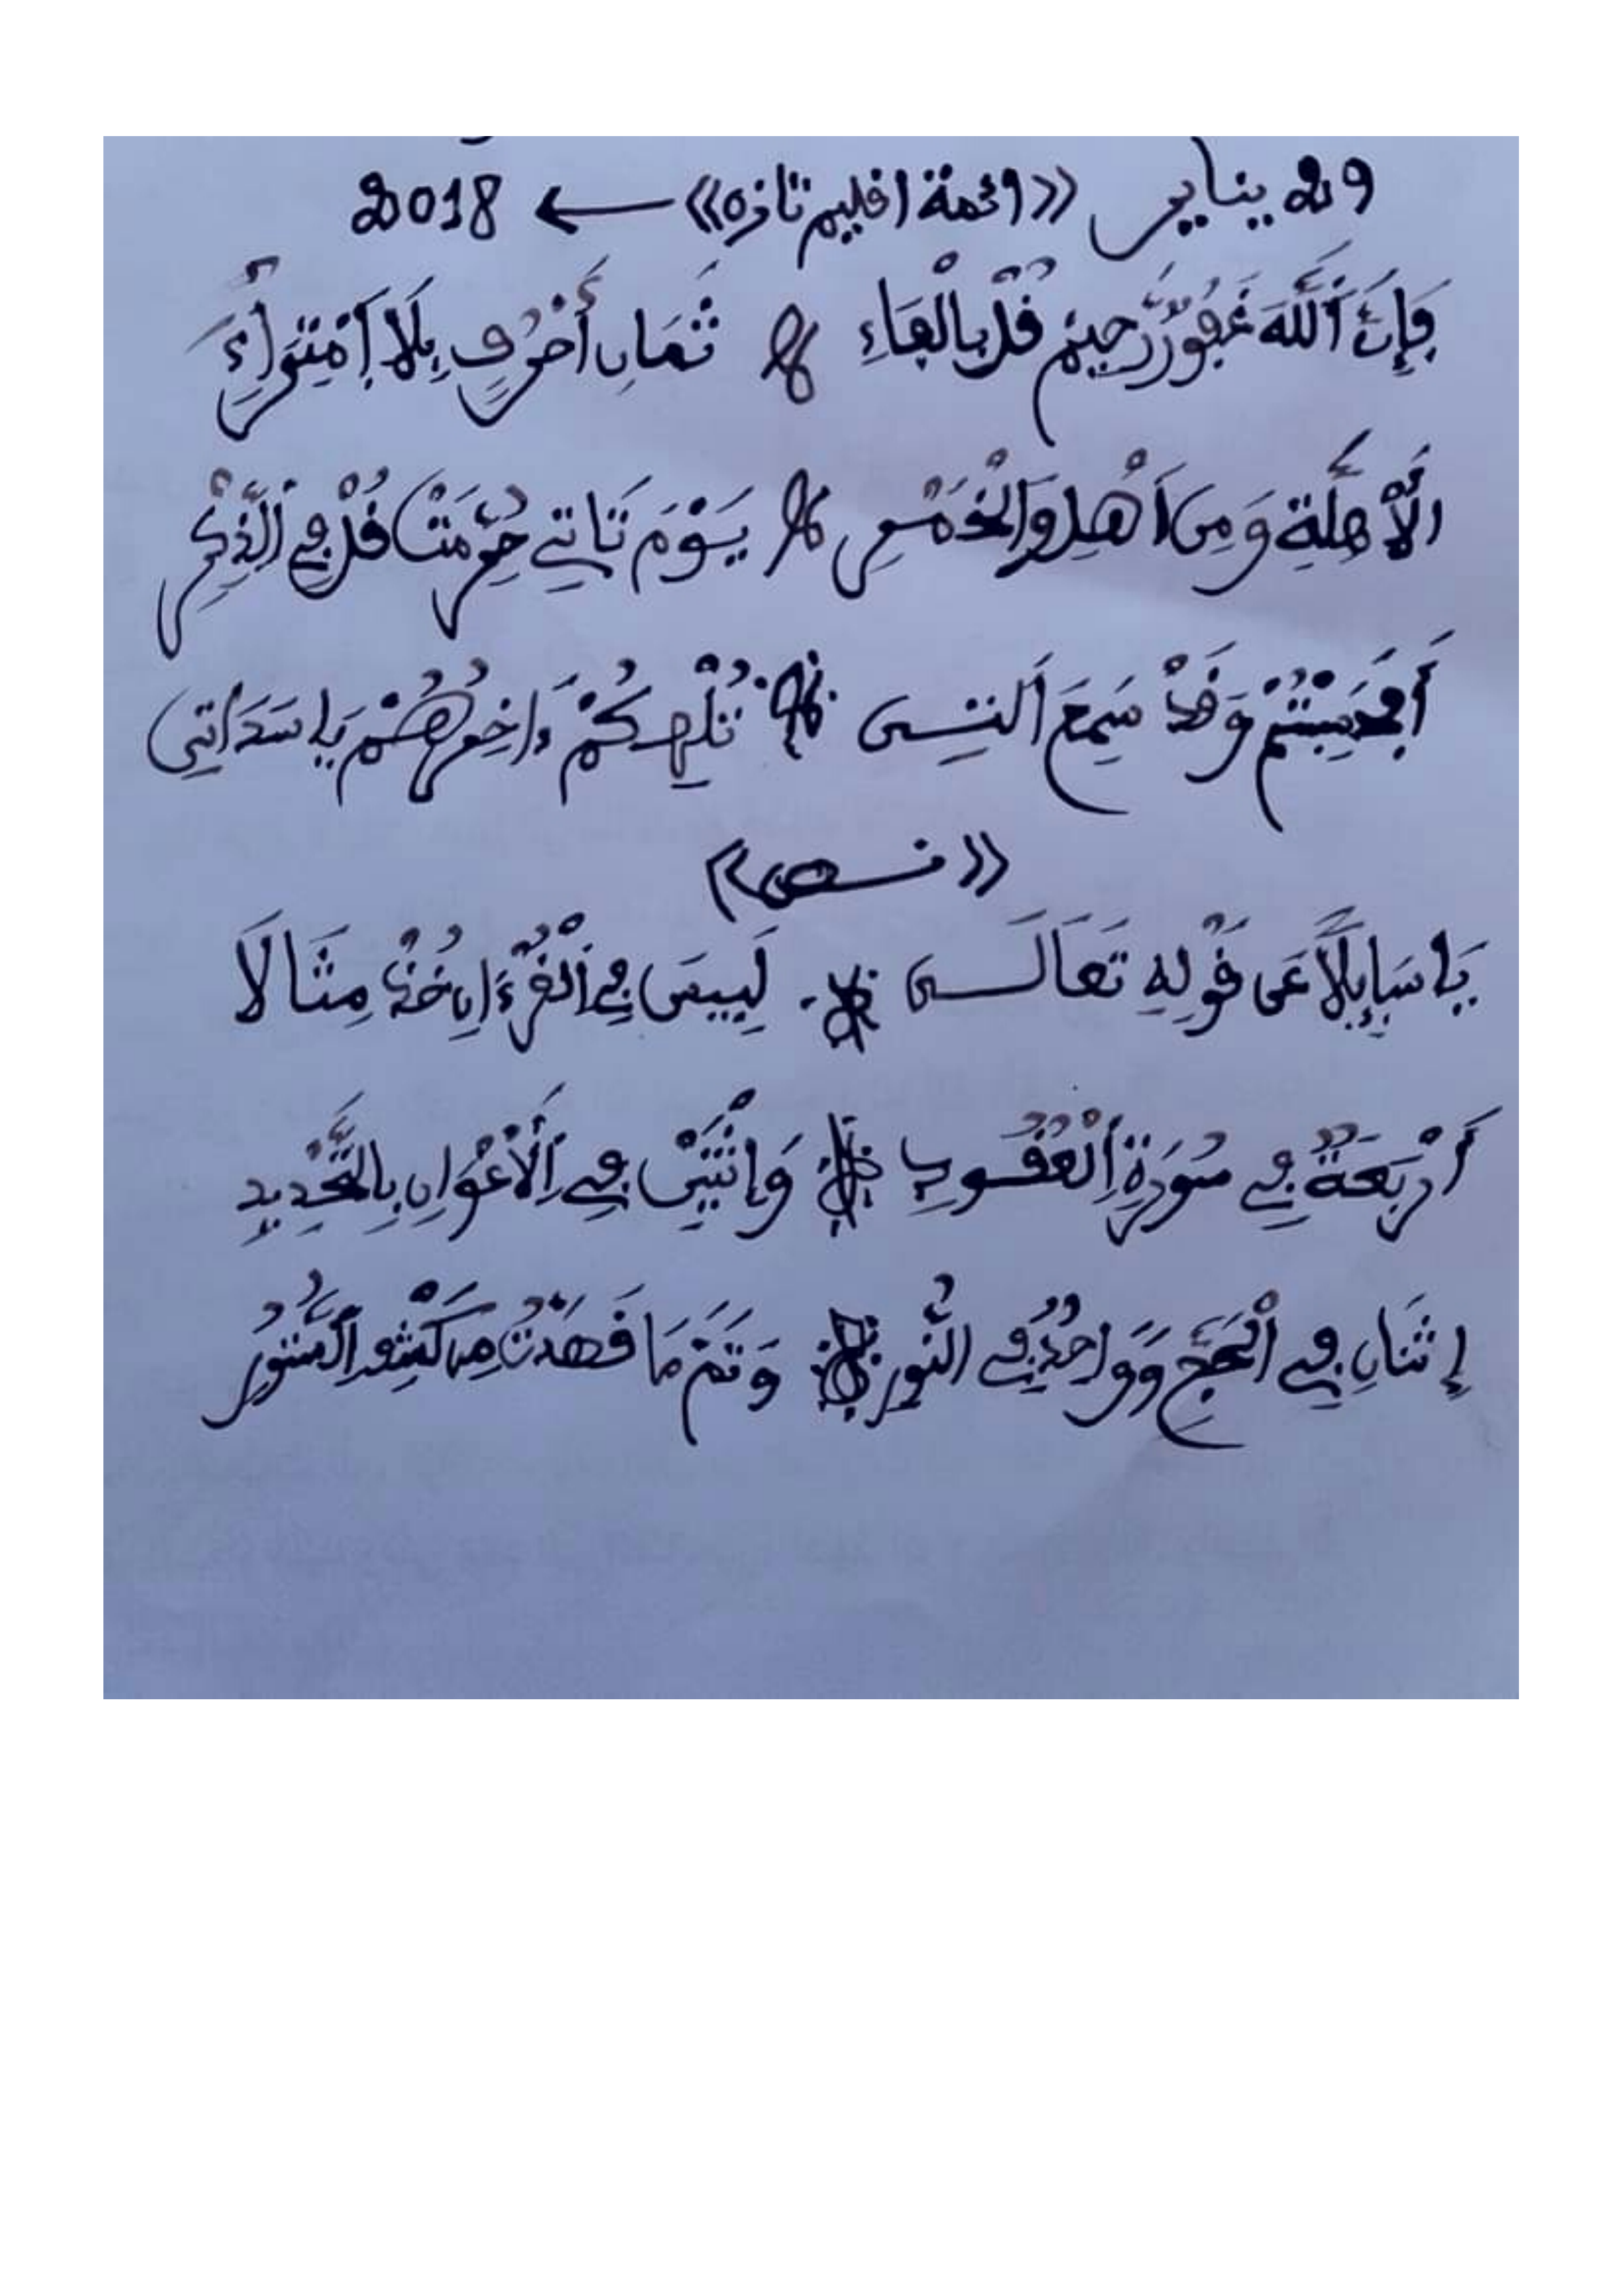 29 يناير «ائمة اقليم تازه» ← 2018
فَإِنَّ اَللَّهَ غَفُورٌ رَّحِيمٌ قُلْ بِالْفَاءِ ثَمَانِ أَحْرُفٍ بِلَا اِمْتِرَاءِ
اَلْأَهِلَّةِ وَمِنَ اَهْلِ وَالْخَمْرِ يَوْمَ تَاتِي حُرِّمَتْ قُلْ فِي اَلذِّكْرِ
أَفَحَسِبْتُمْ وَقَدْ سَمِعَ اَلتِي تُلْهِكُمْ وَاخِرُهُمْ يَا سَدَاتِي
«نص»
يَا سَائِلًا عَن قَوْلِهِ تَعَالَى لَيْسَ فِي اَلْقُرْءَانِ خُذْ مِثَالَا
أَرْبَعَةٌ فِي سُورَةِ اِلْعُقُودِ وَاثْنَيْنِ فِي اِلْأَعْوَانِ بِالتَّحْدِيدِ
إِثْنَانِ فِي اَلْحَجِّ وَوَاحِدٌ فِي النُّورِ وَتَمَّ مَا قَصَدْتُ مِن كَشْفِ اِلْمَسْتُورِ